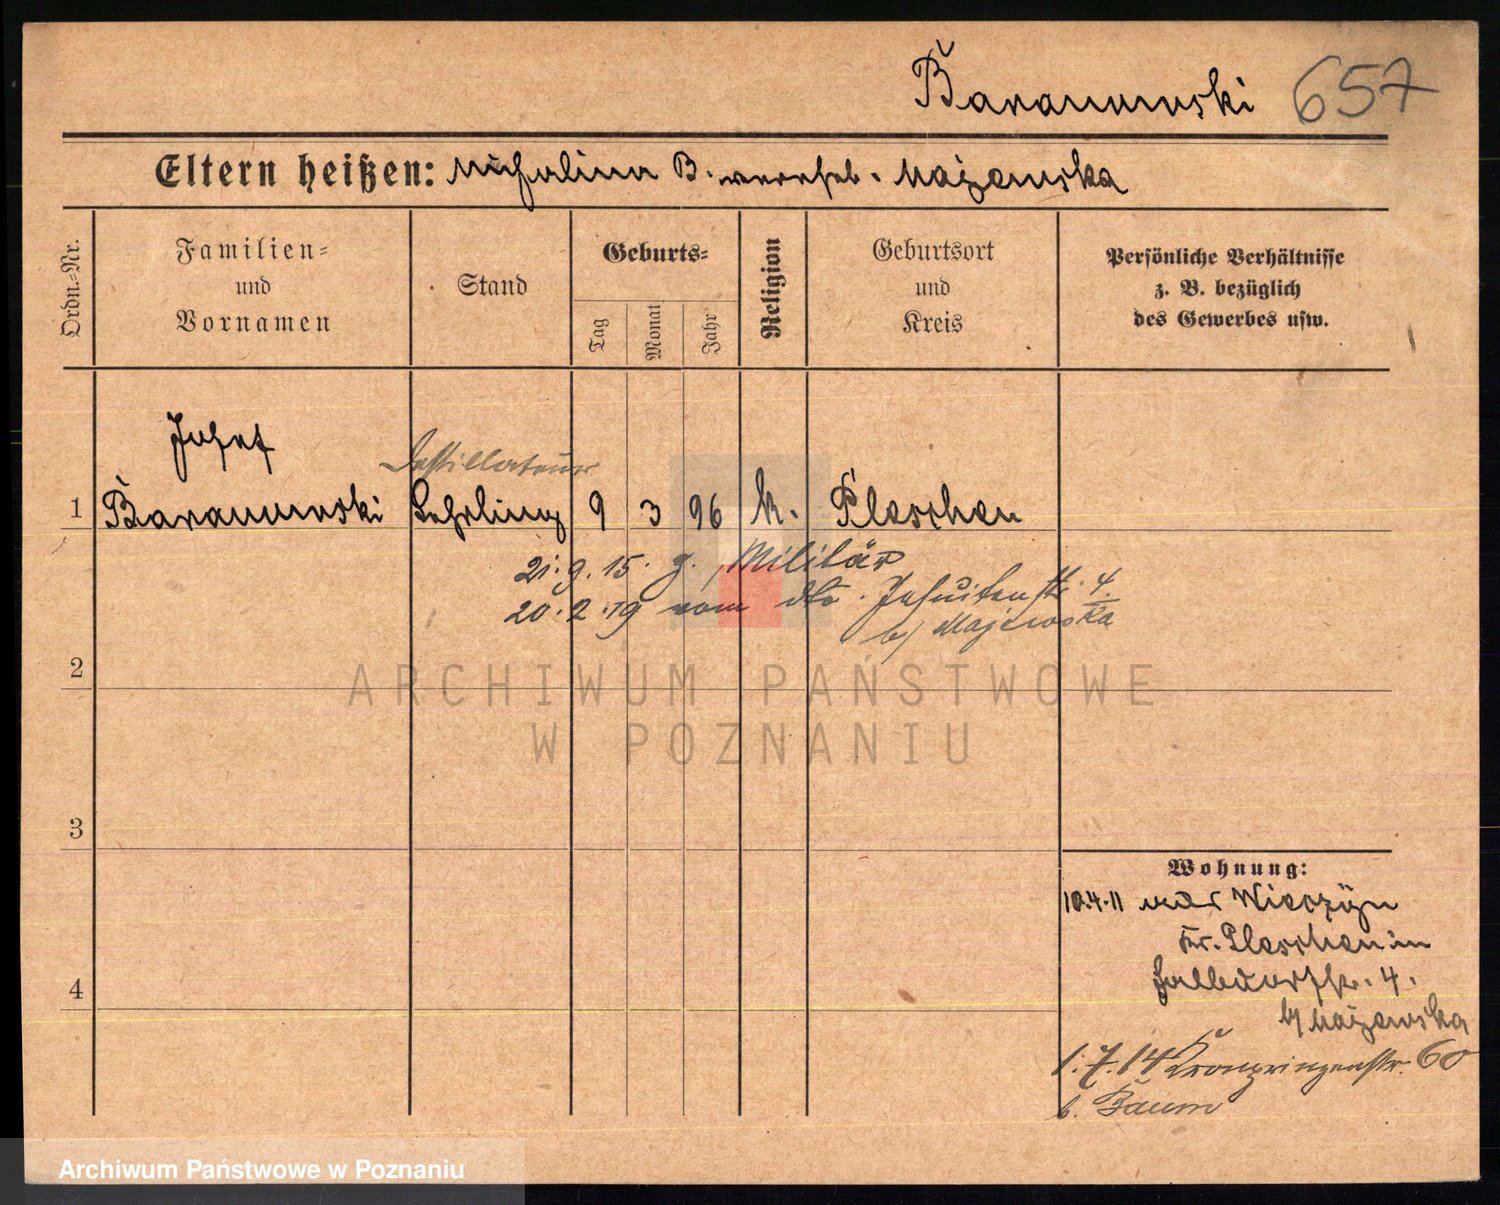 Baranowski 657
Eltern heißen: Michalina B. verehel. Majewska
Ordn.-Nr.
Familien-
und
Vornamen
Stand
Geburts-
Tag
Monat
Jahr
Religion
Geburtsort
und
Kreis
Persönliche Verhältnisse
z. B. bezüglich
des Gewerbes usw.
Josef
Destillateur
1 Baranowski Lehrling 9 3 96 k. Pleschen
21.9.15. z. Militär
20.2.19 vom dto. Jesuitenstr. 4.
b/ Majewska
2
ARCHIWUM PAŃSTWOWE
W POZNANIU
3
Wohnung:
10.4.11 aus Wieczyn
Kr. Pleschen in
Halbdorfstr. 4.
4
b/ Majewska
1.7.14 Kronprinzenstr. 60
b. Baum
Archiwum Państwowe w Poznaniu